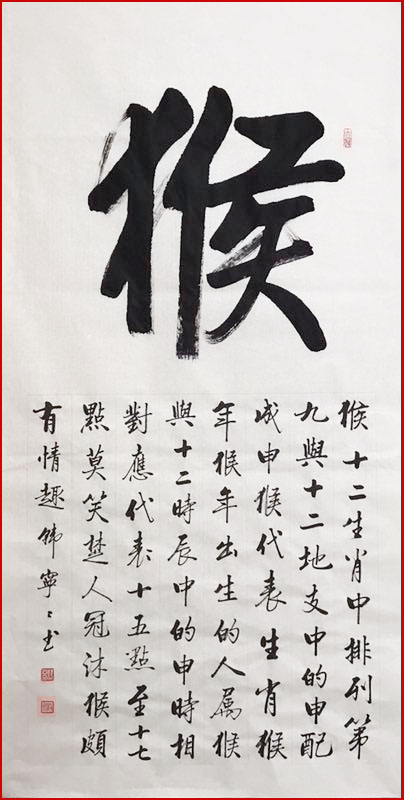 猴
猴十二生肖中排列第
九與十二地支中的申配
成申猴代表生肖猴
年猴年出生的人属猴
與十二時辰中的申時相
對應代表十五點至十七
點莫笑楚人冠沐猴頗
有情趣韩寧寧书